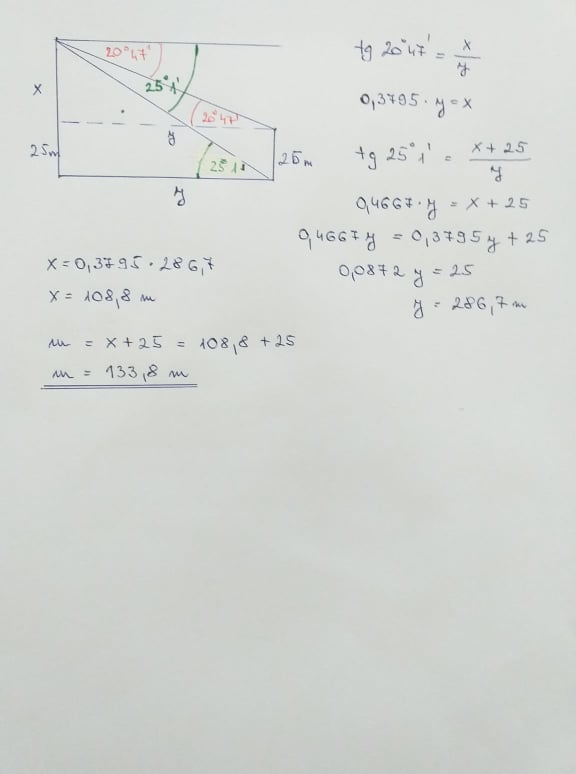 20°47'
25°1'
x
20°47'
y
25m
25°1'
25m
y
tg 20°47' = x/y
0,3795 · y = x
tg 25°1' = x + 25/y
0,4667 · y = x + 25
0,4667 y = 0,3795 y + 25
0,0872 y = 25
y = 286,7 m
x = 0,3795 · 286,7
x = 108,8 m
m = x + 25 = 108,8 + 25
m = 133,8 m